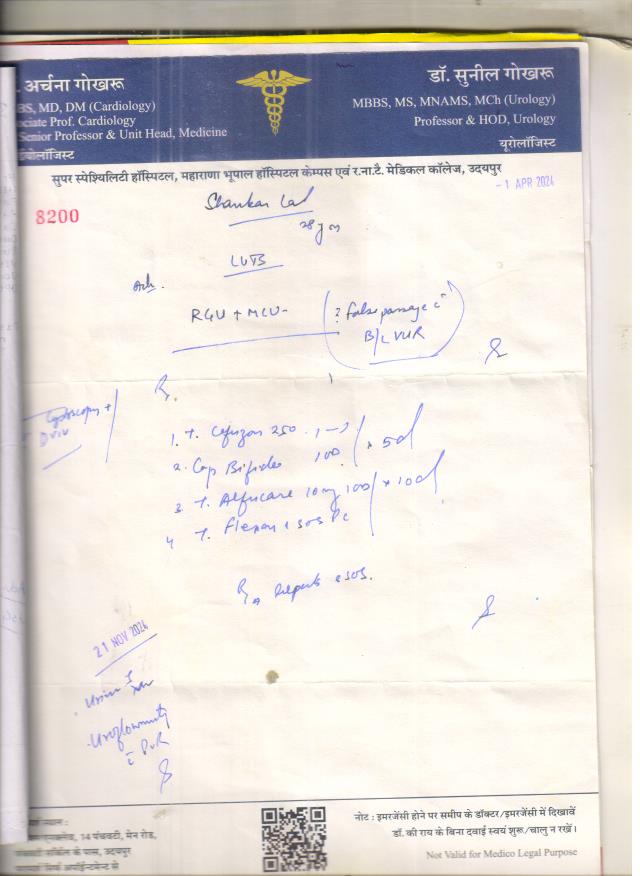 . अर्चना गोखरू
BS, MD, DM (Cardiology)
ciate Prof. Cardiology
Senior Professor & Unit Head, Medicine
डॉ. सुनील गोखरू
MBBS, MS, MNAMS, MCh (Urology)
Professor & HOD, Urology
यूरोलॉजिस्ट
सुपर स्पेशियलिटी हॉस्पिटल, महाराणा भूपाल हॉस्पिटल केम्पस एवं र.ना.टै. मेडिकल कॉलेज, उदयपुर
- 1 APR 2024
8200
Shankar Lal
LUTS
Adv.
RGU + MCU -
(? False passage c̄
B/L VUR)
Rx.
Cystoscopy +
DVIU
1. T. Cefuzon 250 1-1
2. Cap Bifidus 100 } x 5d
3. T. Alfucare 10mg 100 } x 10d
4 T. Flexon c SOS
Reports c SOS.
21 NOV 2024
Urine
Uroflowmetry
c̄ PVR
14 पंचवटी, मेन रोड,
सर्किल के पास, उदयपुर
नोट : इमरजेंसी होने पर समीप के डॉक्टर/इमरजेंसी में दिखावें
डॉ. की राय के बिना दवाई स्वयं शुरू/चालु न रखें।
Not Valid for Medico Legal Purpose